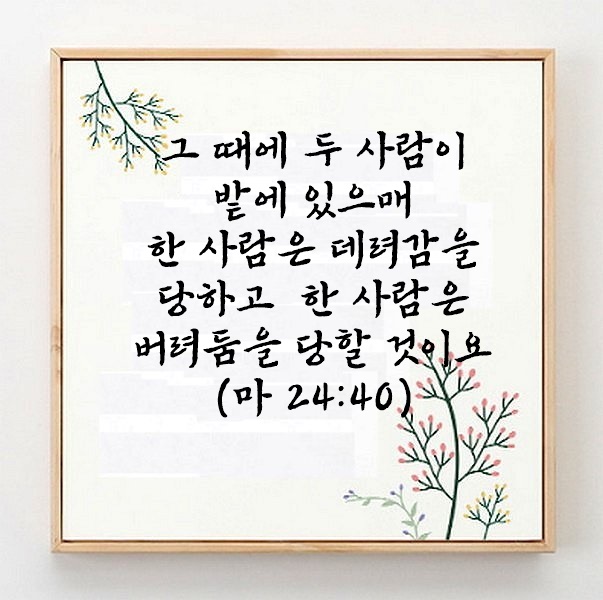 그 때에 두 사람이
밭에 있으매
한 사람은 데려감을
당하고 한 사람은
버려둠을 당할 것이요
(마 24:40)